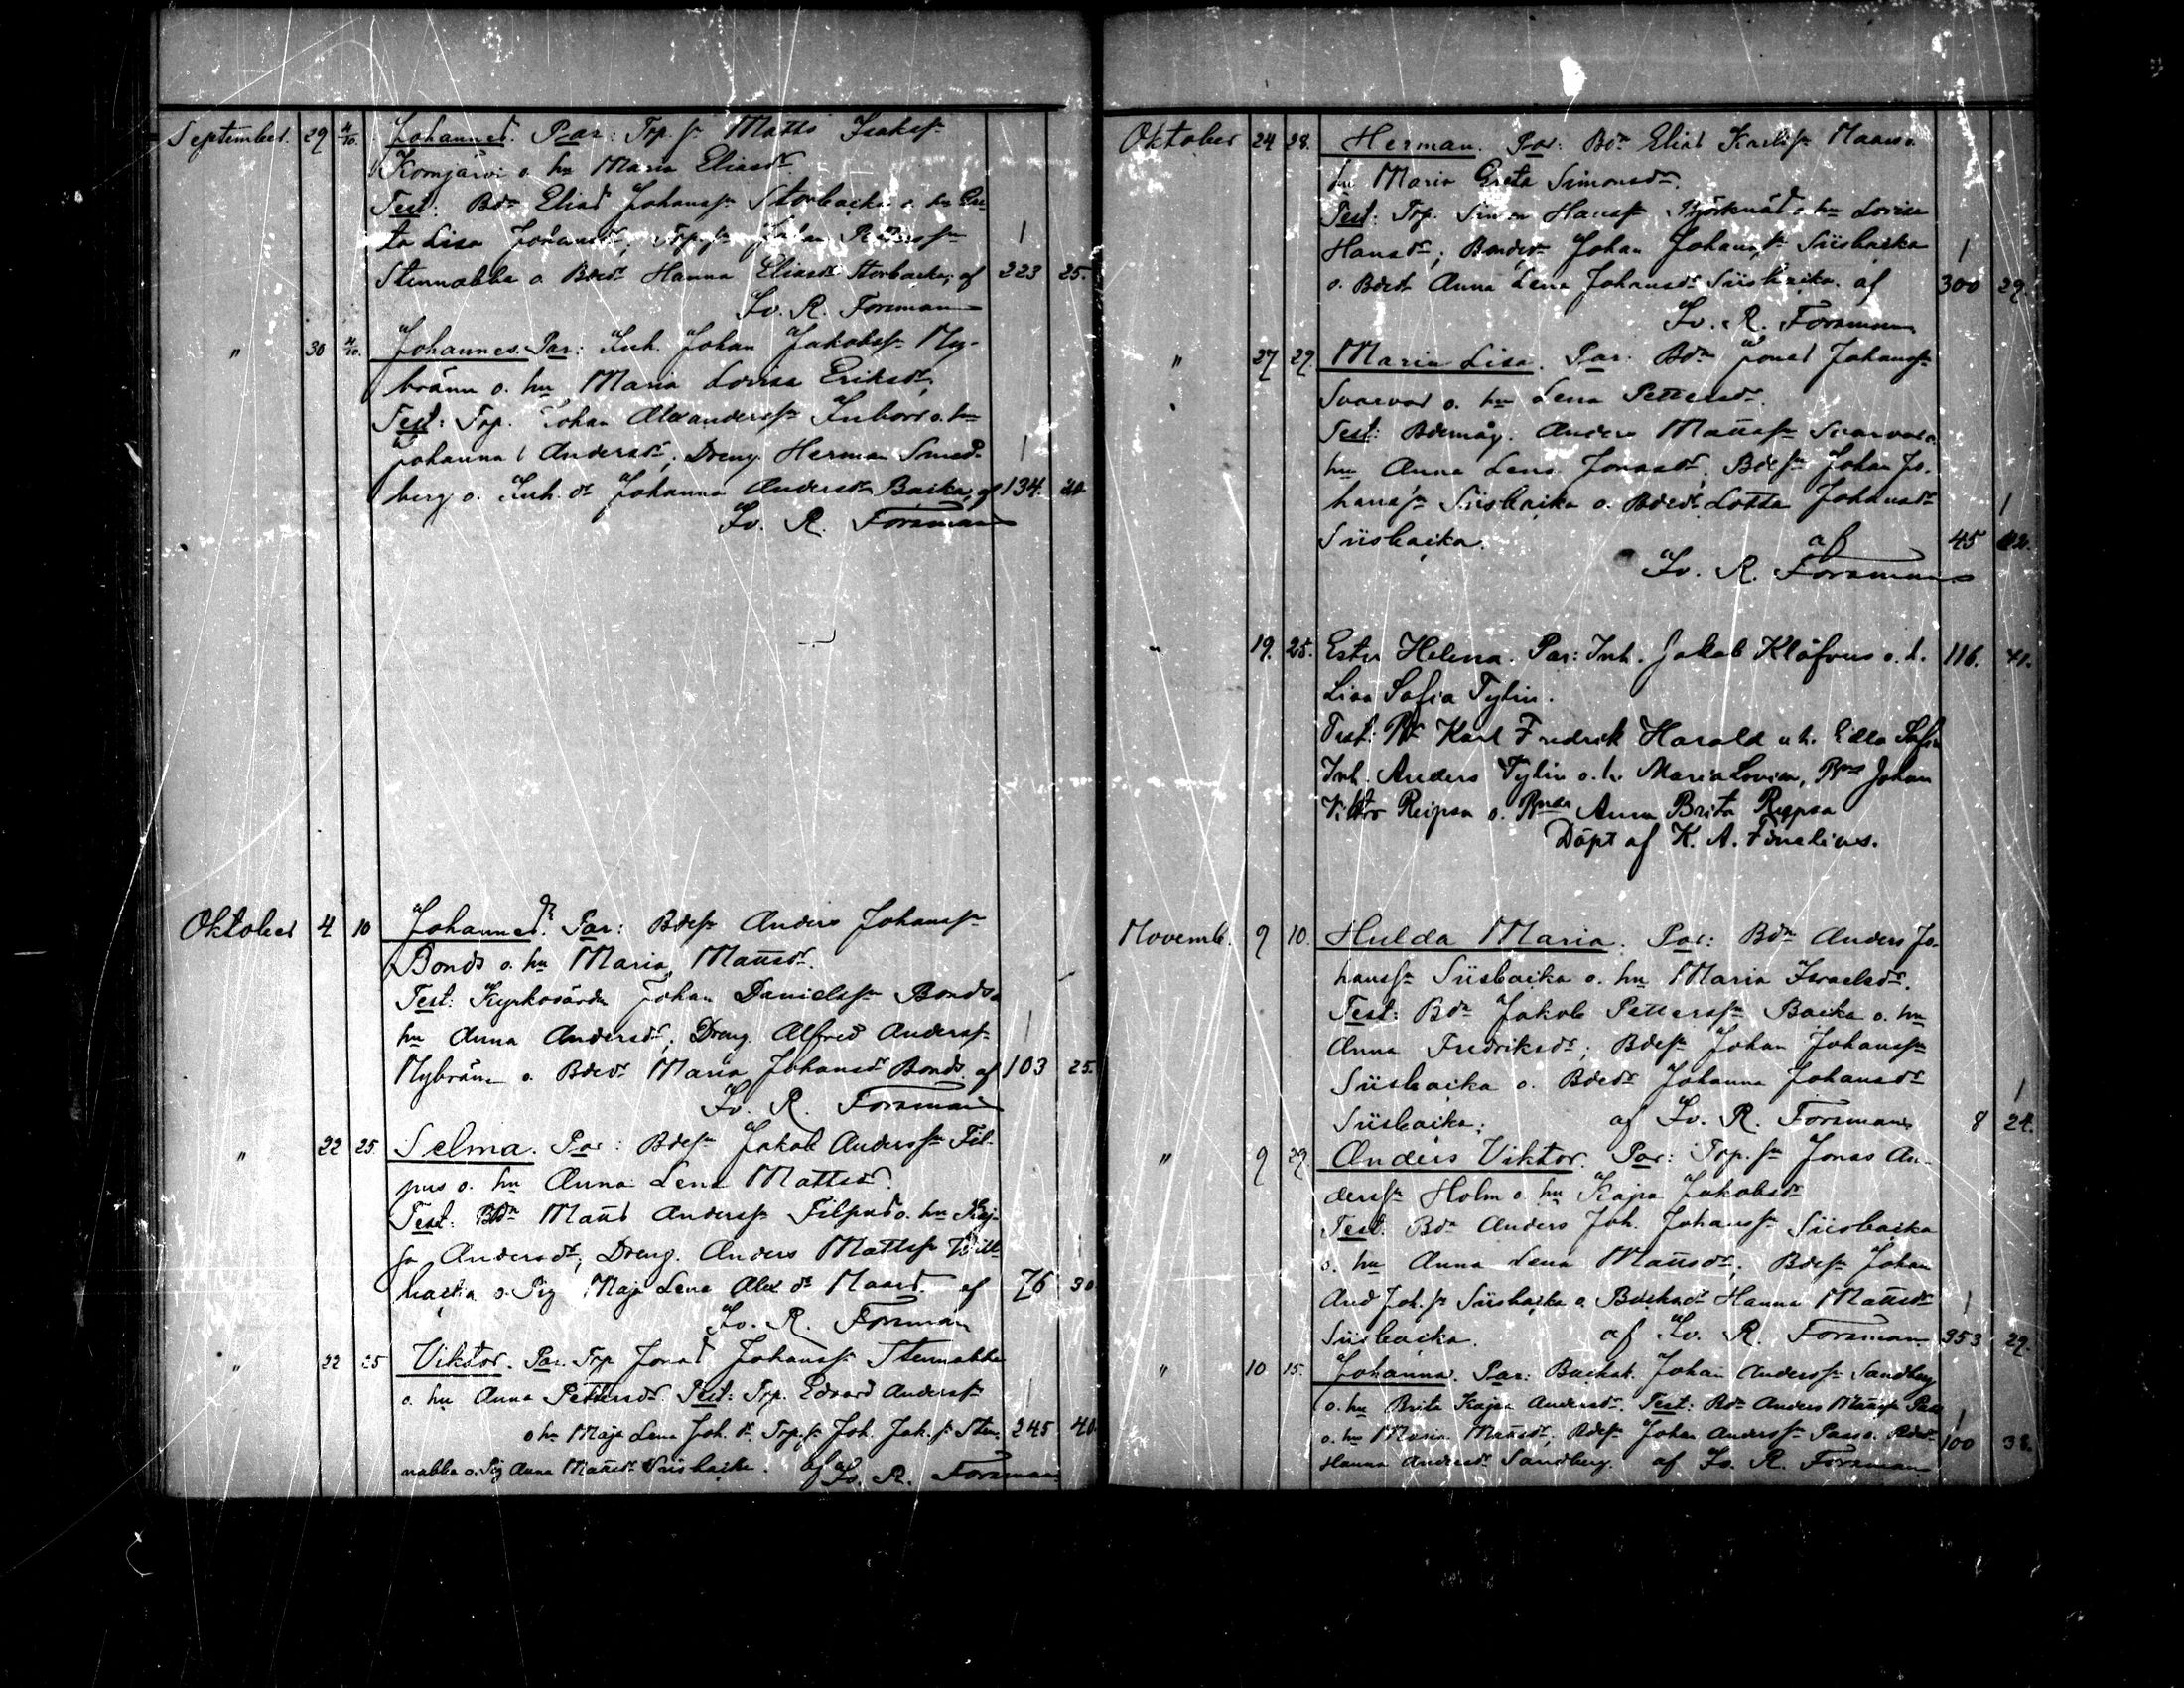 September. 29 4/10. Johannes. Par: Trp. sn Matts Isakssn
Komjärvi o. hu Maria Eliasdr.
Test: Bdn Elias Johanssn Storbacka o. hu Gre-
ta Lisa Johansdr; Trp. sn Johan Anderssn 1
Stennabba o. Bdedr Hanna Eliasdr Storbacka; af 223 25.
Fr. R. Forsman
" 30 4/10. Johannes. Par: Inh. Johan Jakobssn Ny-
bränn o. hu Maria Lovisa Eriksdr;
Test: Trp. Johan Alexanderssn Inborr o. hu
Johanna Andersdr; Dreng. Herman Smed- 1
berg o. Inh. dr Johanna Andersdr Backa, af 134.
Fr. R. Forsman
Oktober 4 10 Johannes. Par: Bdesn Anders Johanssn
Bonds o. hu Maria Mattsdr.
Test: Kyrkovärdn Johan Danielssn Bonds o.
hu Anna Andersdr; Dreng. Alfred Anderssn 1
Nybränn o. Bdedr Maria Johansdr Bonds. af 103 25.
Fr. R. Forsman
" 22 25. Selma. Par: Bdesn Jakob Anderssn Fil-
pus o. hu Anna Lena Mattsdr.
Test: Bdn Matts Anderssn Filpus o. hu Kaj-
sa Andersdr; Dreng. Anders Mattssn Vill-
backa o. Pig Maja Lena Alex dr Maars. af 76 30
Fr. R. Forsman
" 22 25 Viktor. Par. Trp Jonas Johanssn Stennabba
o. hu Anna Pettersdr. Test: Trp. Edvard Anderssn
o hu Maja Lena Joh. dr. Trp. sn Joh. Jak. sn Sten- 245 40.
nabba o. Pig Anna Mattsdr Siisbacka. af Fr. R. Forsman
Oktober 24 28. Herman. Par: Bdn Elias Karlssn Maars o.
hu Maria Greta Simonsdr.
Test: Trp. Simon Hanssn Björknäs o. hu Lovisa
Hansdr; Bondesn Johan Johanssn Siisbacka 1
o. Bdedr Anna Lena Johansdr Siisbacka. af 300 29.
Fr. R. Forsman
" 27 29. Maria Lisa. Par. Bdn Jonas Johanssn
Svarvar o. hu Lena Pettersdr.
Test: Bdemåg. Anders Mattssn Svarvar o.
hu Anna Lena Jonasdr; Bdesn Johan Jo-
hanssn Siisbacka o. Bdedr Lotta Johansdr 1
Siisbacka. af 45
Fr. R. Forsman
" 19. 25. Ester Helena. Par: Inh. Jakob Klöfvus o. h. 116. 41.
Lisa Sofia Tylin.
Test: Karl Fredrik Harald o. h. Edla Sofia
Inh. Anders Tylin o. h. Maria Lovisa, Johan
Viktor Reipsa o. Anna Brita Reipsa
Döpt af K. A. Finelius.
Novemb. 9 10. Hulda Maria. Par: Bdn Anders Jo-
hanssn Siisbacka o. hu Maria Israelsdr.
Test: Bdn Jakob Petterssn Backa o. hu
Anna Fredriksdr; Bdesn Johan Johanssn
Siisbacka o. Bdedr Johanna Johansdr 1
Siisbacka; af Fr. R. Forsman 8 24.
" 9 29 Anders Viktor. Par: Trp. sn Jonas An-
derssn Holm o. hu Kajsa Jakobsdr
Test: Bdn Anders Joh. Johanssn Siisbacka
o. hu Anna Lena Mattsdr; Bdesn Johan
And Joh. sn Siisbacka o. Hanna Mattsdr 1
Siisbacka. af Fr. R. Forsman 353 29.
" 10 15. Johanna. Par: Backst. Johan Anderssn Sandberg
o. hu Brita Kajsa Andersdr. Test: Bdn Anders Mattssn Pass
o. hu Maria Mattsdr; Bdesn Johan Anderssn Pass o. Bdedr 1
Hanna Andersdr Sandberg. af Fr. R. Forsman 100 38.